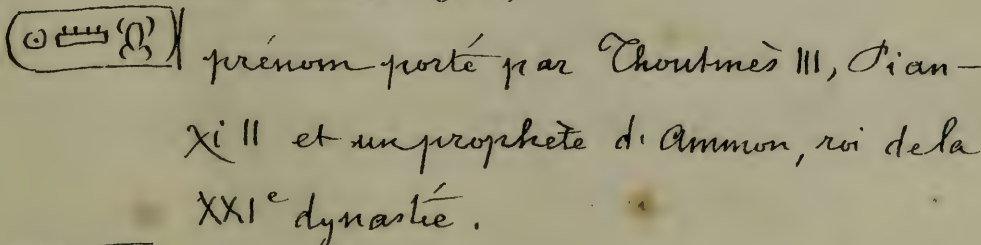 𓇳𓏠𓆣 prénom porté par Thoutmès III, Pian-
χi II et un prophète d'Ammon, roi de la
XXIe dynastie.